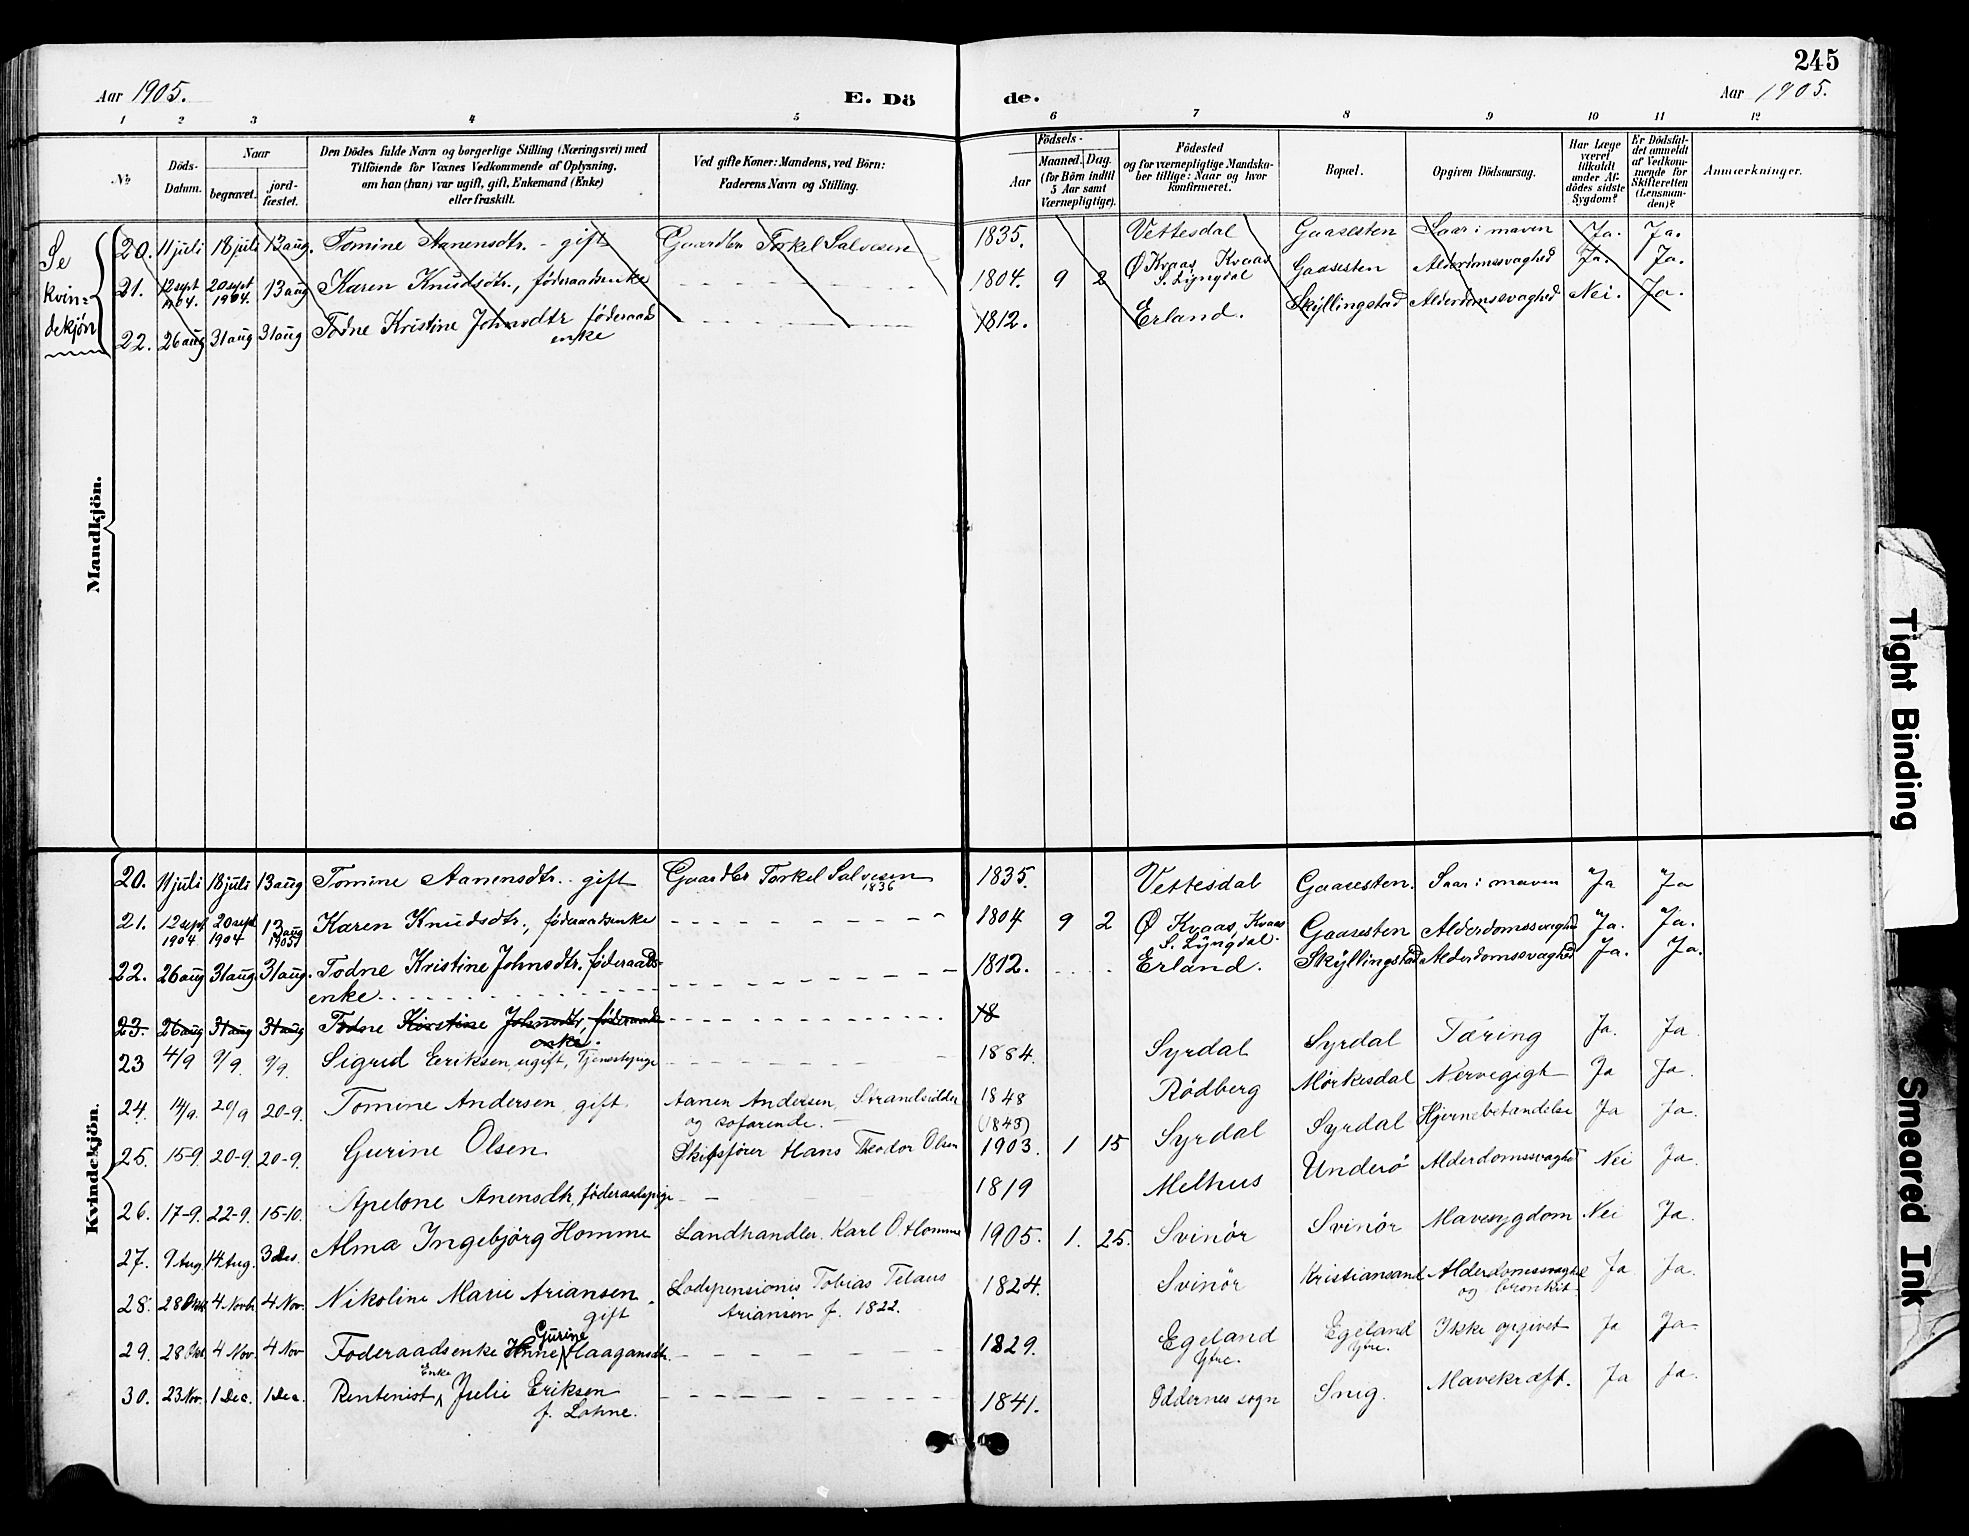 245
Aar 1905.
E. Dö
de.
Aar 1905.
1 2 3 4 5 6 7 8 9 10 11 12
No
Döds-
Datum.
Naar
begravet.
jord-
fæstet.
Den Dödes fulde Navn og borgerlige Stilling (Næringsvei) med
Tilföiende for Voxnes Vedkommende af Oplysning,
om han (hun) var ugift, gift, Enkemand (Enke)
eller fraskilt.
Ved gifte Koner: Mandens, ved Börn:
Faderens Navn og Stilling.
Födsels-
Aar
Maaned. Dag.
(for Börn indtil
5 Aar samt
Værnepligtige).
Födested
og for værnepligtige Mandska-
ber tillige: Naar og hvor
konfirmeret.
Bopæl.
Opgiven Dödsaarsag.
Har Læge
været
tilkaldt
under Af-
dödes sidste
Sygdom?
Er Dödsfal-
det anmeldt
af Vedkom-
mende for
Skifteretten
(Lensman-
den)?
Anmærkninger.
Se
kvin=
dekjön
20. 11 juli 18 juli 13 aug. Tomine Aanensdtr. - gift Gaardbr Torkel Salvesen 1835. Vettesdal Gaasesten Saar i maven Ja. Ja.
21. 12 sept 1904. 20 sept 1904. 13 aug Karen Knudsdtr., föderaadsenke 1804. 9 2 Ø Kvaas, Kvaas S. Lyngdal Gaasesten Alderdomssvaghed Ja. Ja.
22. 26 aug 31 aug 31 aug Todne Kristine Johnsdtr föderaads
enke 1812. Erland. Skyllingstad Alderdomssvaghed Nei. Ja.
Mandkjön.
20. 11 juli 18 juli 13 aug Tomine Aanensdtr. - gift Gaardbr Torkel Salvesen 1836 1835. Vettesdal Gaasesten. Saar i maven Ja Ja
21. 12 sept. 1904 20 sept 1904 13 aug 1905 Karen Knudsdtr., föderaadsenke 1804 9 2 Ø Kvaas, Kvaas S. Lyngdal. Gaasesten Alderdomssvaghed Ja. Ja.
22. 26 aug 31 aug 31 aug. Todne Kristine Johnsdtr. föderaads-
enke 1812. Erland. Skyllingstad Alderdomssvaghed Ja. Ja.
23. 26 aug 31 aug 31 aug Todne Kristine Johnsdtr, föderaads
enke. 18
23 4/9 9/9. 9/9. Sigrid Eriksen, ugift, Tjenestepige 1884. Syrdal Syrdal Tæring Ja. Ja
24. 14/9. 20/9 20-9. Tomine Andersen, gift. Aanen Andersen, Strandsidder
og sofarende. 1848 (1843) Rödberg Mörkesdal Nervegigt Ja Ja.
25. 15-9. 20-9. 20-9. Gurine Olsen Skibsförer Hans Theodor Olsen 1903. 1 15 Syrdal Syrdal Hjernebetændelse Ja Ja.
26. 17-9. 22-9. 15-10. Apelone Anensdtr, föderaadspige 1819 Melhus Underö Alderdomssvaghed Nei Ja.
27. 9 Aug 14 Aug. 3 Des. Alma Ingebjörg Homme Landhandler. Karl O. Homme 1905. 1. 25. Svinör Svinör Mavesygdom Nei Ja.
28. 28 Okt 4 Novbr. 4 Nov. Nikoline Marie Ariansen
gift Lodspensionis Tobias Telaus
Ariansen f. 1822. 1824. Svinör Kristiansand Alderdomssvaghed
og bronkit. Ja Ja.
29. 28 Okt. 4 Nov. 4 Nov Föderaadsenke Gurine Haagansdtr. 1829. Egeland
Ytre. Egeland
Ytre. Ikke opgivet Ja Ja
30. 23 Nov. 1 Dec. 1 Dec. Rentenist Enke Julie Eriksen
f. Lohne. 1841. Oddernes sogn Snig. Mavekræft. Ja Ja.
Kvindekjön.
Tight Binding
Smeared Ink